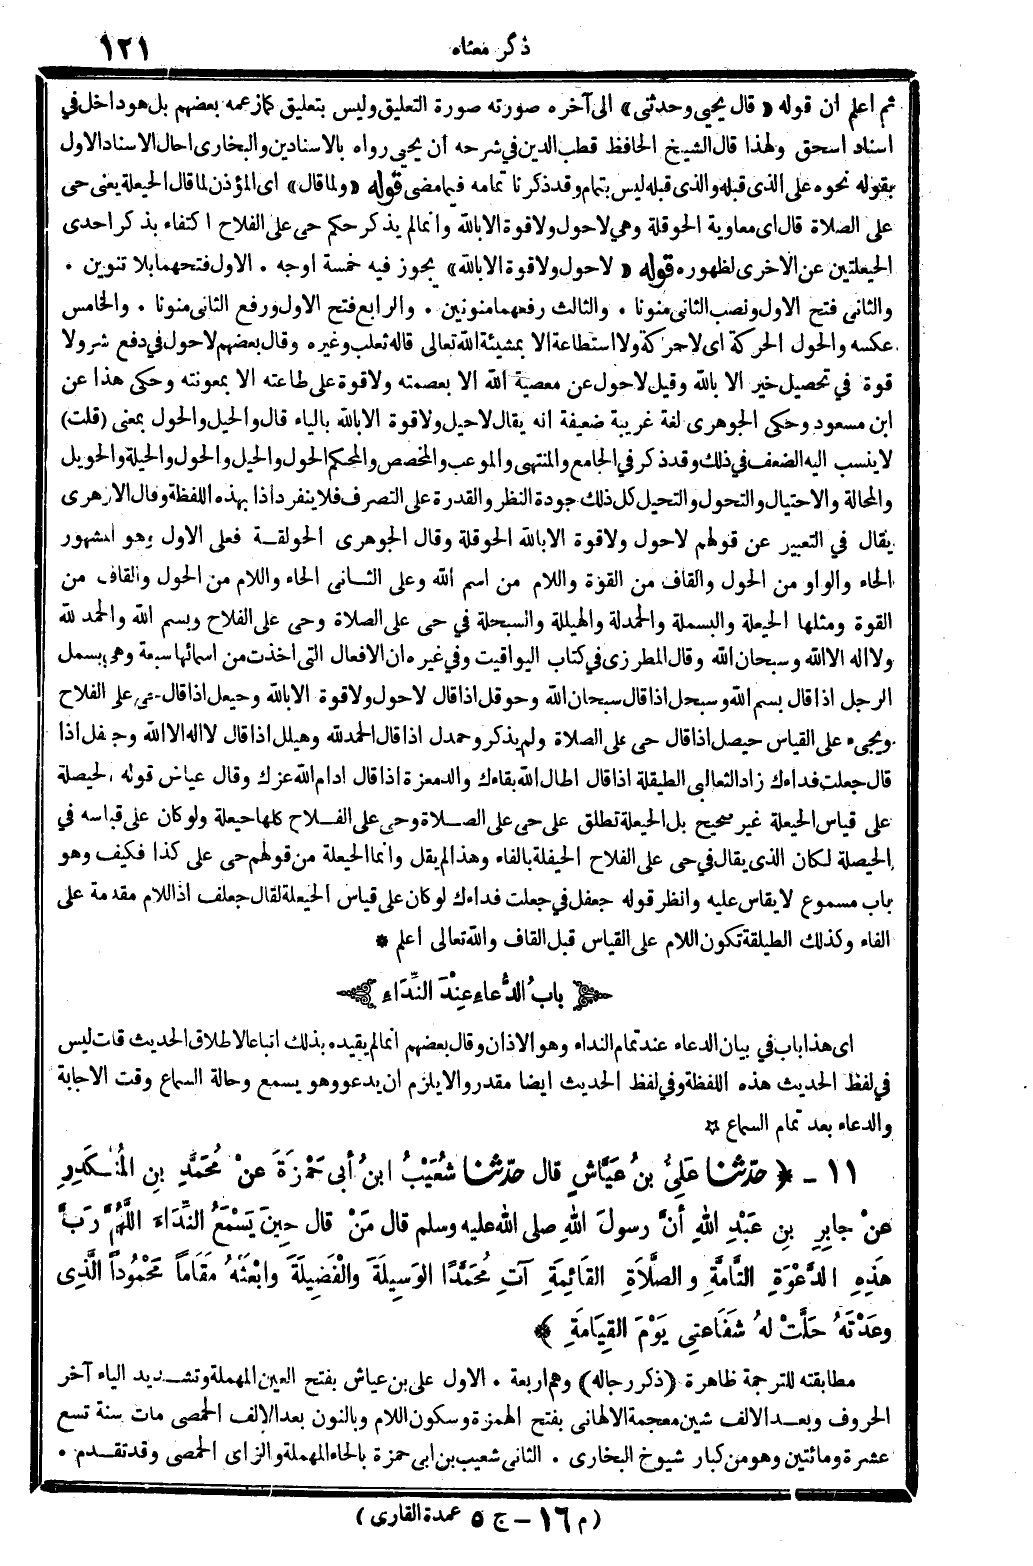 ذكر معناه
١٢١
ثم اعلم أن قوله « قال يحيى وحدثنى » الى آخره صورته صورة التعليق وليس بتعليق كما زعمه بعضهم بل هو داخل فى
اسناد اسحق ولهذا قال الشيخ الحافظ قطب الدين فى شرحه أن يحيى رواه بالاسنادين والبخارى احال الاسناد الاول
بقوله نحوه على الذى قبله والذى قبله ليس بتمام وقد ذكرنا تمامه فيما مضى قوله « ولما قال » اى المؤذن لما قال الحيعلة يعنى حى
على الصلاة قال اى معاوية الحوقلة وهى لاحول ولا قوة الا بالله وانما لم يذكر حكم حى على الفلاح اكتفاء بذكر احدى
الحيعلتين عن الاخرى لظهوره قوله « لاحول ولا قوة الا بالله » يجوز فيه خمسة اوجه . الاول فتحهما بلا تنوين .
والثانى فتح الاول ونصب الثانى منونا . والثالث رفعهما منونين . والرابع فتح الاول ورفع الثانى منونا . والخامس
عكسه والحول الحركة اى لاحركة ولا استطاعة الا بمشيئة الله تعالى قاله ثعلب وغيره وقال بعضهم لاحول فى دفع شر ولا
قوة فى تحصيل خير الا بالله وقيل لاحول عن معصية الله الا بعصمته ولا قوة على طاعته الا بمعونته وحكى هذا عن
ابن مسعود وحكى الجوهرى لغة غريبة ضعيفة انه يقال لاحيل ولا قوة الا بالله بالياء قال والحيل والحول بمعنى (قلت)
لا ينسب اليه الضعف فى ذلك وقد ذكر فى الجامع والمنتهى والموعب والمخصص والمحكم الحول والحيل والحول والحيلة والحويل
والمحالة والاحتيال والتحول والتحيل كل ذلك جودة النظر والقدرة على التصرف فلا ينفرد اذا بهذه اللفظة وقال الازهرى
يقال فى التعبير عن قولهم لاحول ولا قوة الا بالله الحوقلة وقال الجوهرى الحولقة فعلى الاول وهو المشهور
الحاء والواو من الحول والقاف من القوة واللام من اسم الله وعلى الثانى الحاء واللام من الحول والقاف من
القوة ومثلها الحيعلة والبسملة والحمدلة والهيللة والسبحلة فى حى على الصلاة وحى على الفلاح وبسم الله والحمد لله
ولا اله الا الله وسبحان الله وقال المطرزى فى كتاب اليواقيت وفى غيره ان الافعال التى اخذت من اسمائها سبعة وهى بسمل
الرجل اذا قال بسم الله وسبحل اذا قال سبحان الله وحوقل اذا قال لاحول ولا قوة الا بالله وحيعل اذا قال حى على الفلاح
ويجىء على القياس حيصل اذا قال حى على الصلاة ولم يذكر وحمدل اذا قال الحمد لله وهيلل اذا قال لا اله الا الله وجعفل اذا
قال جعلت فداءك زاد الثعالبى الطيقلة اذا قال اطال الله بقاءك والدمعزة اذا قال ادام الله عزك وقال عياض قوله الحيصلة
على قياس الحيعلة غير صحيح بل الحيعلة تطلق على حى على الصلاة وحى على الفلاح كلها حيعلة ولو كان على قياسه فى
الحيصلة لكان الذى يقال فى حى على الفلاح الحيفلة بالفاء وهذا لم يقل وانما الحيعلة من قولهم حى على كذا فكيف وهو
باب مسموع لا يقاس عليه وانظر قوله جعفل فى جعلت فداءك لو كان على قياس الحيعلة لقال جعلف اذ اللام مقدمة على
الفاء وكذلك الطيلقة تكون اللام على القياس قبل القاف والله تعالى اعلم *
بابُ الدُّعاءِ عِنْدَ النِّدَاءِ
اى هذا باب فى بيان الدعاء عند تمام النداء وهو الاذان وقال بعضهم انما لم يقيده بذلك اتباعا لاطلاق الحديث قلت ليس
فى لفظ الحديث هذه اللفظة وفى لفظ الحديث ايضا مقدر والا يلزم ان يدعو وهو يسمع وحالة السماع وقت الاجابة
والدعاء بعد تمام السماع ☆
١١ - ﴿ حدّثنا عَلِىُّ بنُ عَيَّاشٍ قال حدّثنا شُعَيْبُ ابنُ أبى حَمْزَةَ عنْ مُحَمَّدِ بنِ المُنْكَدِرِ
عنْ جابِرِ بنِ عَبْدِ اللهِ أنَّ رسولَ اللهِ صلى الله عليه وسلم قال مَنْ قال حِينَ يَسْمَعُ النِّدَاءَ اللَّهُمَّ رَبَّ
هَذِهِ الدَّعْوَةِ التَّامَّةِ والصَّلاَةِ القَائِمَةِ آتِ مُحَمَّدًا الوَسِيلَةَ والْفَضِيلَةَ وابْعَثْهُ مَقَاماً مَحْمُوداً الَّذِى
وعَدْتَهُ حَلَّتْ لهُ شَفَاعتى يَوْمَ القِيَامَةِ ﴾
مطابقته للترجمة ظاهرة (ذكر رجاله) وهم اربعة . الاول على بن عياش بفتح العين المهملة وتشديد الياء آخر
الحروف وبعد الالف شين معجمة الالهانى بفتح الهمزة وسكون اللام وبالنون بعد الالف الحمصى مات سنة تسع
عشرة ومائتين وهو من كبار شيوخ البخارى . الثانى شعيب بن ابى حمزة بالحاء المهملة والزاى الحمصى وقد تقدم .
(م ١٦ - ج ٥ عمدة القارى)